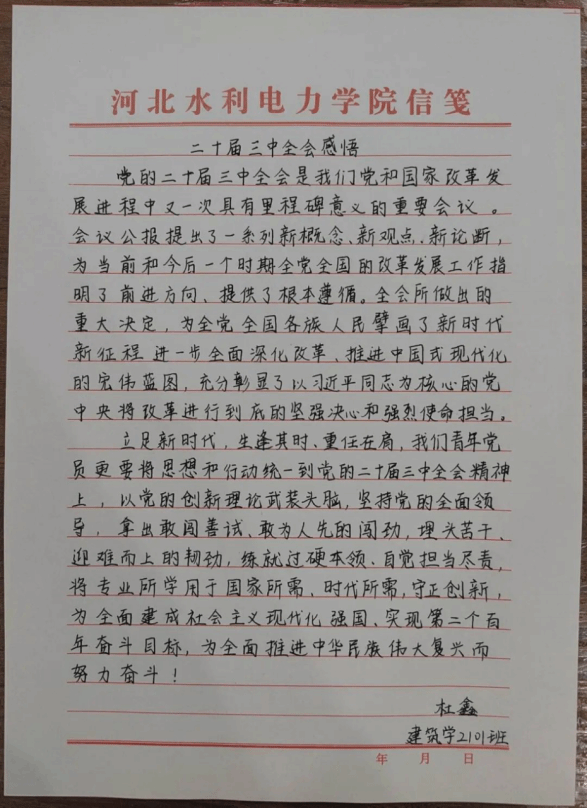 河北水利电力学院信笺
二十届三中全会感悟
党的二十届三中全会是我们党和国家改革发
展进程中又一次具有里程碑意义的重要会议。
会议公报提出了一系列新概念、新观点、新论断，
为当前和今后一个时期全党全国的改革发展工作指
明了前进方向、提供了根本遵循。全会所做出的
重大决定，为全党全国各族人民擘画了新时代
新征程进一步全面深化改革、推进中国式现代化
的宏伟蓝图，充分彰显了以习近平同志为核心的党
中央将改革进行到底的坚强决心和强烈使命担当。
立足新时代，生逢其时、重任在肩，我们青年党
员更要将思想和行动统一到党的二十届三中全会精神
上，以党的创新理论武装头脑，坚持党的全面领
导，拿出敢闯善试、敢为人先的闯劲，埋头苦干、
迎难而上的韧劲，练就过硬本领、自觉担当尽责，
将专业所学用于国家所需、时代所需，守正创新，
为全面建成社会主义现代化强国、实现第二个百
年奋斗目标，为全面推进中华民族伟大复兴而
努力奋斗！
杜鑫
建筑学2101班
年 月 日